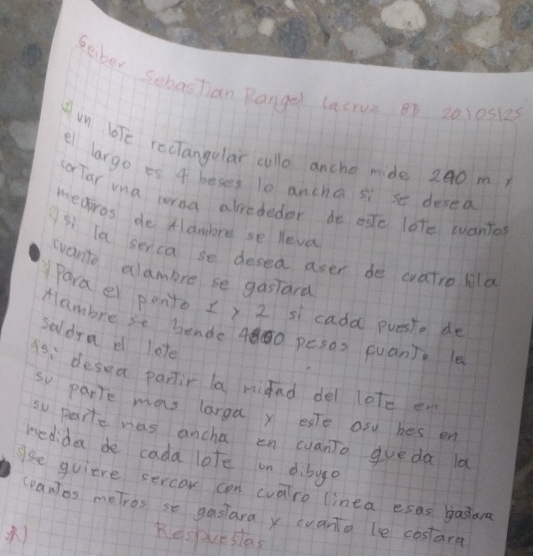 Seiber Sebastian Rangel Lacruz 8B 20/05/25
1) un loTe recTangular cullo ancho mide 240 m y
el largo es 4 beses lo ancho si se desea
corTar una cerca alrededor de esTe loTe cuanTos
metros de Alambre se lleva
2) si la serca se desea aser de cuaTro hila
cuanTo alambre se gasTara
3) Para el ponTo 1 y 2 si cada puesTo de
Alambre se bende pesos cuanTo le
saldra el loTe
4) si desea parTir la miTad del loTe en
su parTe mas larga y esTe asu bes en
su parTe mas ancha en cuanTo queda la
medida de cada loTe un dibugo
5) se quiere sercar con cuaTro linea esos
cuanTos meTros se gasTara y cuanTo le costara
R) RespuesTas